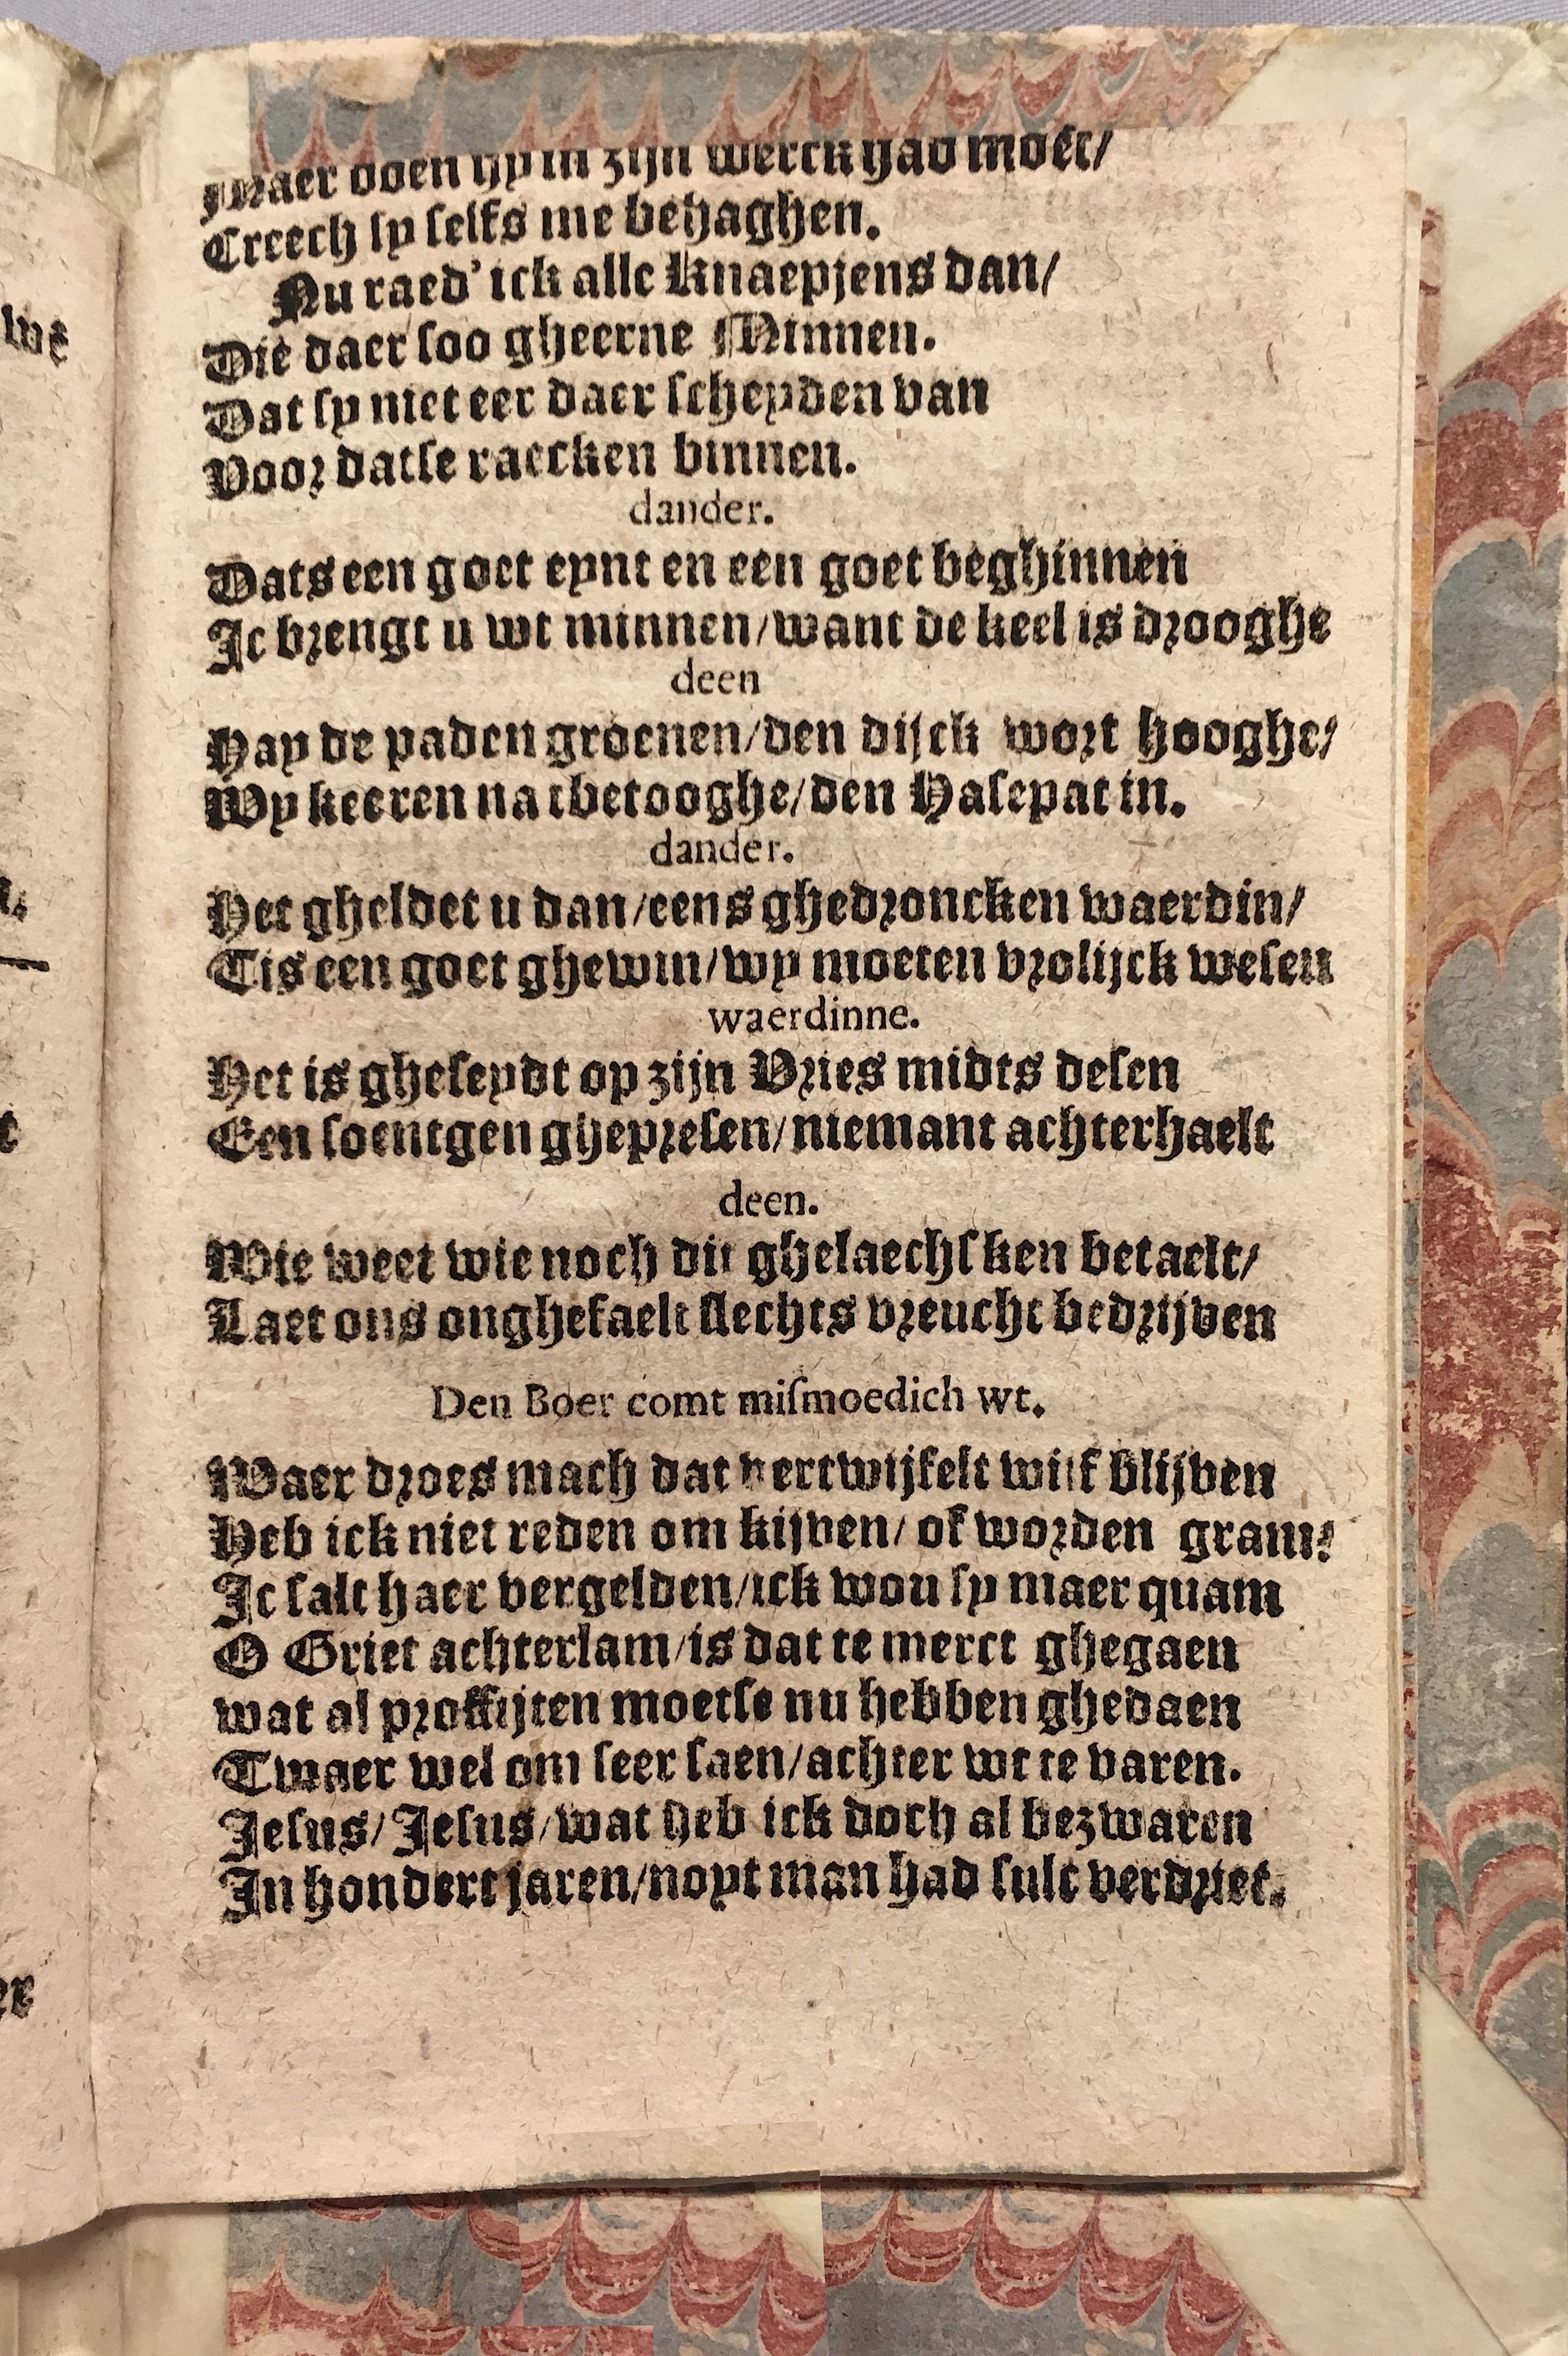 Maer doen hy in zijn werck had moet/
Creech sy selfs me behaghen.
Nu raed' ick alle knaepjens dan/
Die daer soo gheerne Minnen.
Dat sy niet eer daer scheyden van
Voor datse raecken binnen.
dander.
Dats een goet eynt en een goet beghinnen
Ic brengt u wt minnen/want de keel is drooghe
deen
Hay de paden groenen/den dijck wort hooghe/
Wy keeren na tbetooghe/den Hasepat in.
dander.
Het gheldet u dan/eens ghedroncken waerdin/
Tis een goet ghewin/wy moeten vrolijck wesen
waerdinne.
Het is gheseydt op zijn Vries midts desen
Een soentgen ghepresen/niemant achterhaelt
deen.
Wie weet wie noch dit ghelaechsken betaelt/
Laet ons onghefaelt slechts vreucht bedrijven
Den Boer comt mismoedich wt.
Waer droes mach dat vertwijfelt wijf blijven
Heb ick niet reden om kijven/ of worden gram:
Ic salt haer vergelden/ick wou sy maer quam
O Griet achterlam/is dat te merct ghegaen
wat al proffijten moetse nu hebben ghedaen
Twaer wel om seer saen/achter wt te varen.
Jesus/Jesus/wat heb ick doch al bezwaren
In hondert jaren/noyt man had sulc verdriet.
we
t
er